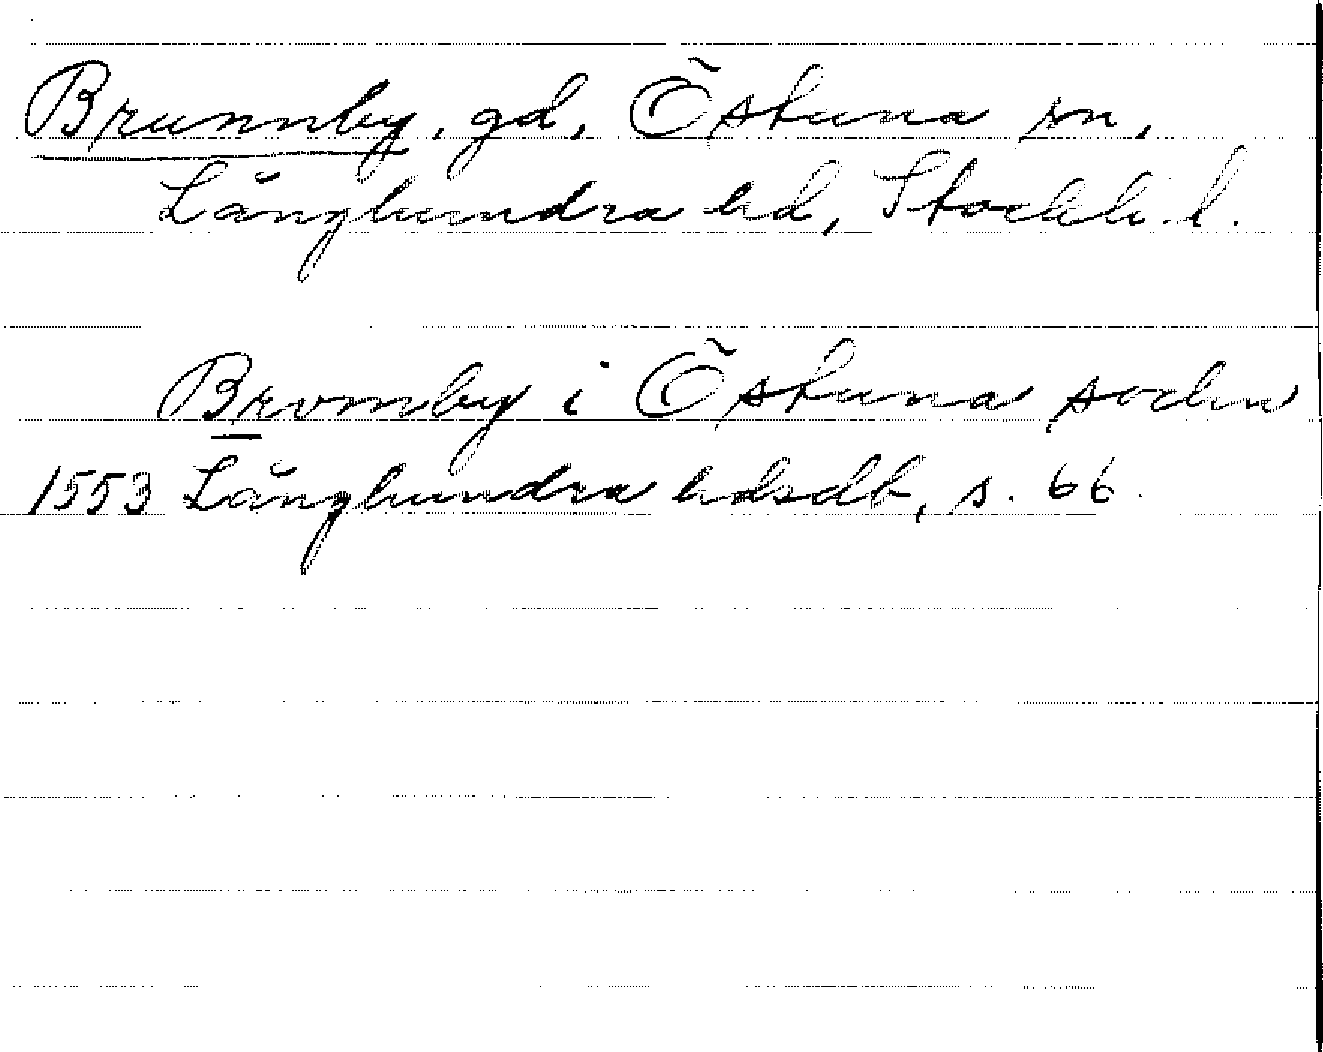 Brunnby, gd, Östuna sn,
Långhundra hd, Stockh. l.
Bromby i Östuna sochn
1553 Långhundra hdsdb, s. 66.